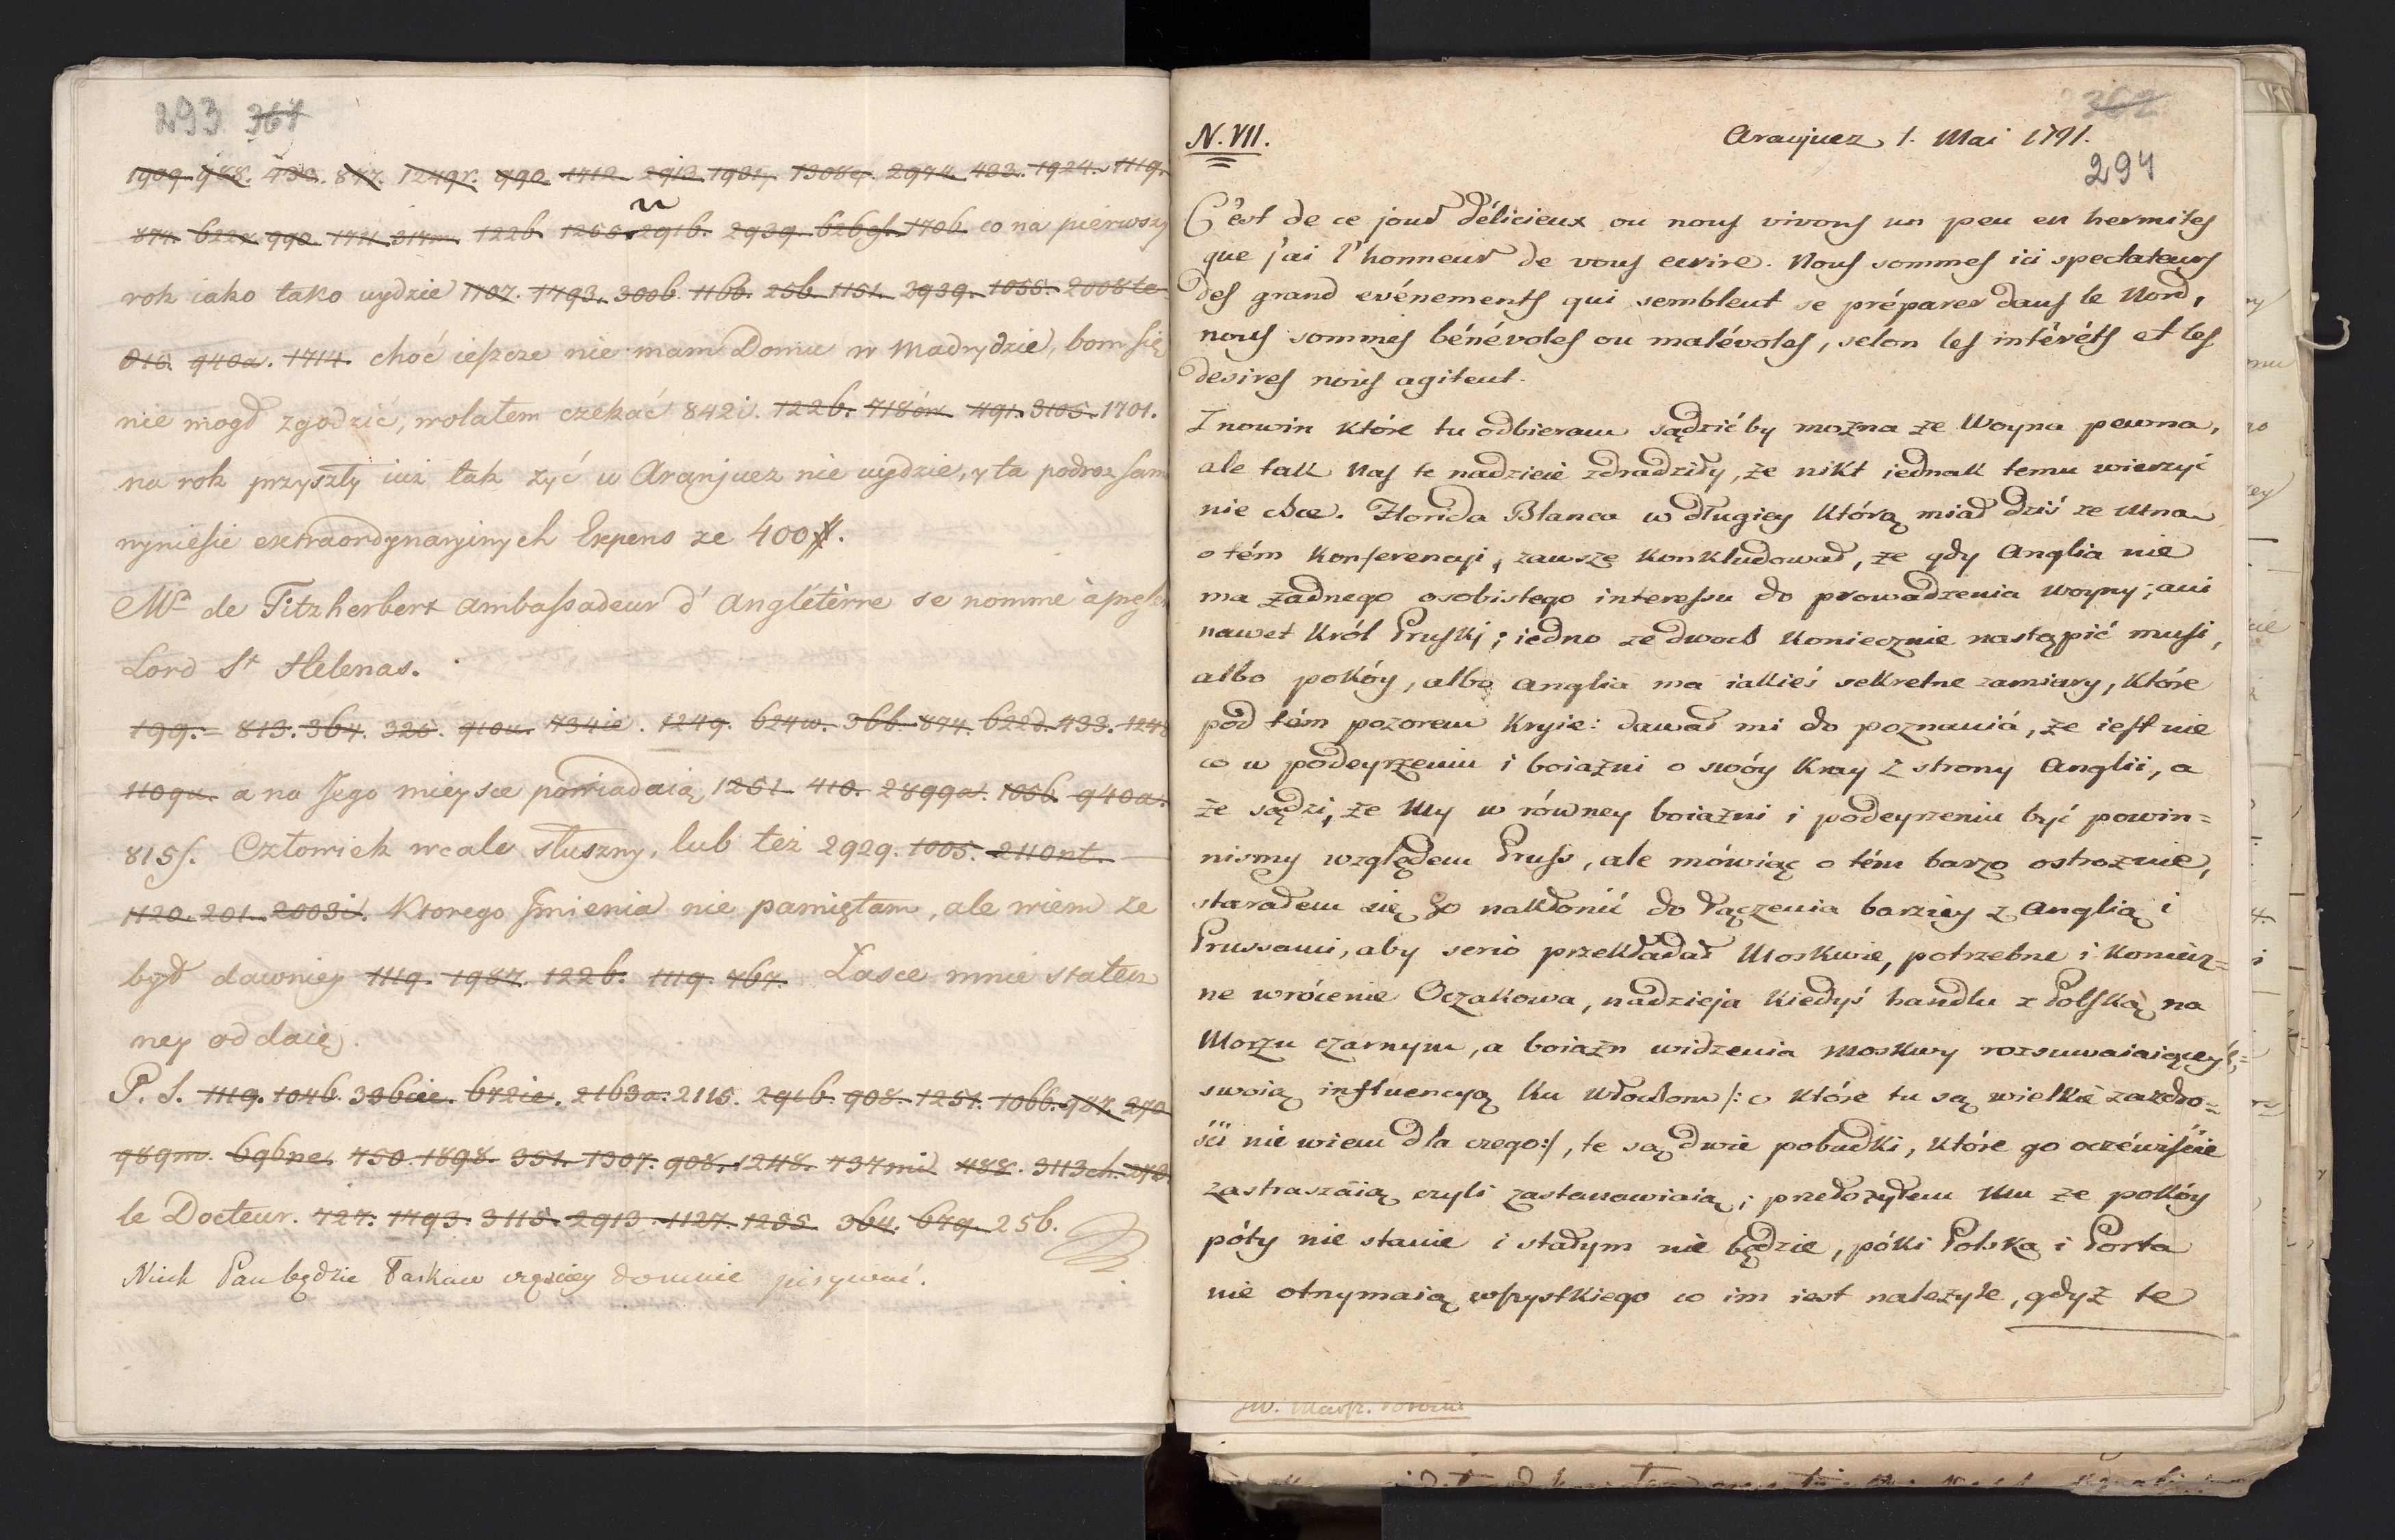 293 367
1909. 988. 430. 847. 1249r. 990. 1712. 2913. 1981. 1308q. 2974. 433. 1924. 1119.
u
874. 622x. 990. 1721. 317m. 122b. 1255. 291b. 2939. 626gł. 170b. co na pierwszy
rok iako tako uydzie 1707. 1793. 300b. 116b. 256. 1151. 2939. 1055. 2008te
016. 940a. 1714. choć ieszcze nie mam Domu w Madrydzie, bom się
nie mogł zgodzić, wolałem czekać 842i. 122b. 718ów. 491. 3105. 1701.
na rok przyszły iuż tak żyć w Aranjuez nie uydzie, y ta podroz sam
wyniesie extraordynaryinych Expens ze 400#.
Mr. de Fitzherbert ambassadeur d'Angléterre se nomme à prese
Lord St Helenas.
199. = 813. 364. 326. 910u. 734ie. 1249. 624w. 366. 874. 622d. 433. 1248
1109u. a na Jego mieysce powiadaią 1251. 410. 2899a. 1056. 940a.
815s. Człowiek wcale słuszny, lub też 2929. 1005. 2110nt.
1120. 201. 2003i. Ktorego Jmienia nie pamiętam, ale wiem ze
był dawniey 1119. 1987. 122b. 1119. 767. Łasce mnie statecz
ney oddaię.
P. S. 1119. 1046. 396cie. 672ie. 2163a. 2115. 2916. 908. 1251. 1066. 987. 270
989m. 696ne. 450. 1898. 351. 1307. 908. 1248. 737mi 488. 3113ch. 273.
le Docteur. 727. 1793. 3115. 2913. 1127. 1255. 364. 679. 256.
Niech Pan będzie łaskaw częściey domnie pisywać.
362
N. VII. Aranjuez 1. Mai 1791.
294
C'est de ce jour délicieux ou nous vivons un peu en hermites
que j'ai l'honneur de vous ecrire. Nous sommes ici spectateurs
des grand evénements qui semblent se préparer dans le Nord,
nous sommes bénévoles ou malévoles, selon les intérêts et les
desires nous agitent.
Z nowin które tu odbieram sądzić by można że Woyna pewna,
ale tak Nas te nadzieie zdradziły, że nikt iednak temu wierzyć
nie chce. Florida Blanca w długiey którą miał dziś ze mna
o tém konferencyi, zawsze konkludował, że gdy Anglia nie
ma żadnego osobistego interessu do prowadzenia woyny; ani
nawet Król Pruski; iedno ze dwoch koniecznie nastąpić musi,
albo pokóy, albo Anglia ma iakieś sekretne zamiary, które
pod tém pozorem kryie: dawał mi do poznania, że iest nie
co w podeyrzeniu i boiaźni o swóy kray z strony Anglii, a
że sądzi, że My w równey boiaźni i podeyrzeniu być powin=
nismy względem Pruss, ale mówiąc o tém barzo ostroznie,
starałem się Go nakłonić do łączenia barziey z Anglią i
Prussami, aby serio przekładał Moskwie, potrzebne i koniecz=
ne wrócenie Oczakowa, nadzieja kiedyś handlu z Polską na
Morzu czarnym, a boiaźn widzenia Moskwy rozsuwaiaiącey
swoią influencyą ku Włochom /: o które tu są wielkie zazdro=
ści nie wiem dla czego:/, te są dwie pobudki, które go oczéwiście
zastraszaią czyli zastanowiaią; przełożyłem Mu że pokóy
póty nie stanie i stałym nie będzie, póki Polska i Porta
nie otrzymaią wszystkiego co im iest należyte, gdyż te